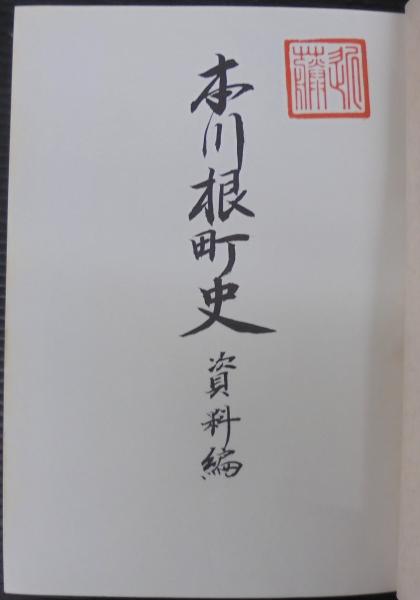 本川根町史
資料編
近藤